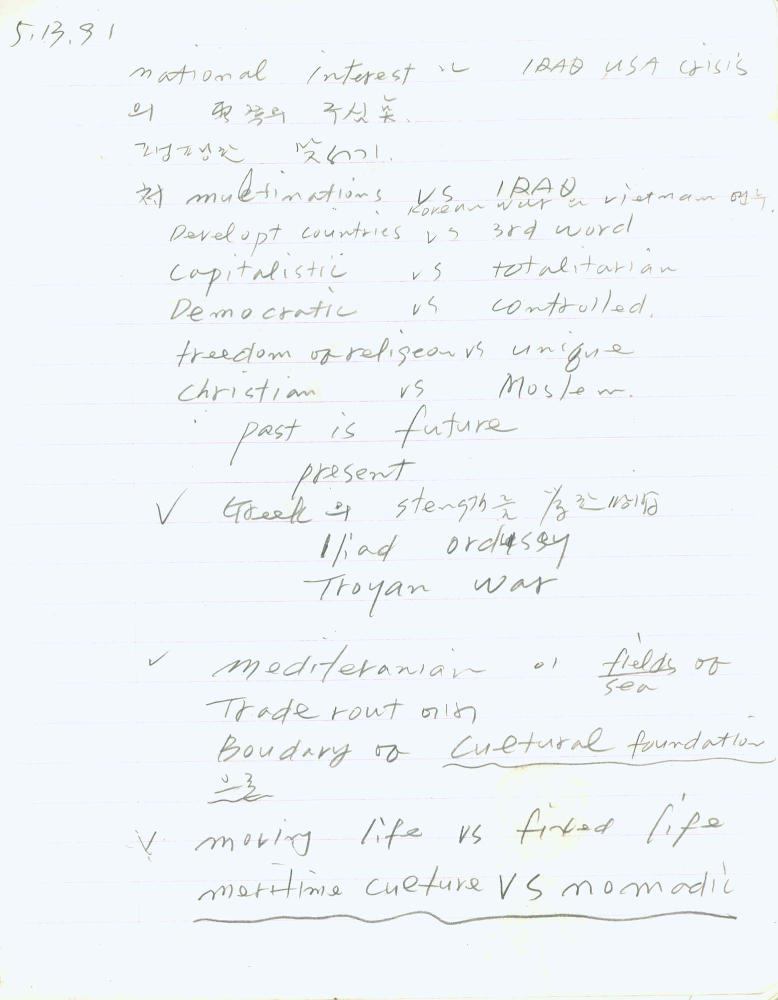 5.13.91
national interest IRAQ USA crisis
의
multinations VS IRAQ
Korean war vietnam
Developt countries vs 3rd word
Capitalistic vs totalitarian
Democratic vs controlled.
freedom of religeon vs unique
Christian vs Moslem.
past is future
present
Greek 의 stength
Iliad
Troyan war
mediteranian 이 fields of
sea
Trade rout 에서
Boudary of cultural foundation
으로
moving life vs fixed life
meritime culture VS nomadic